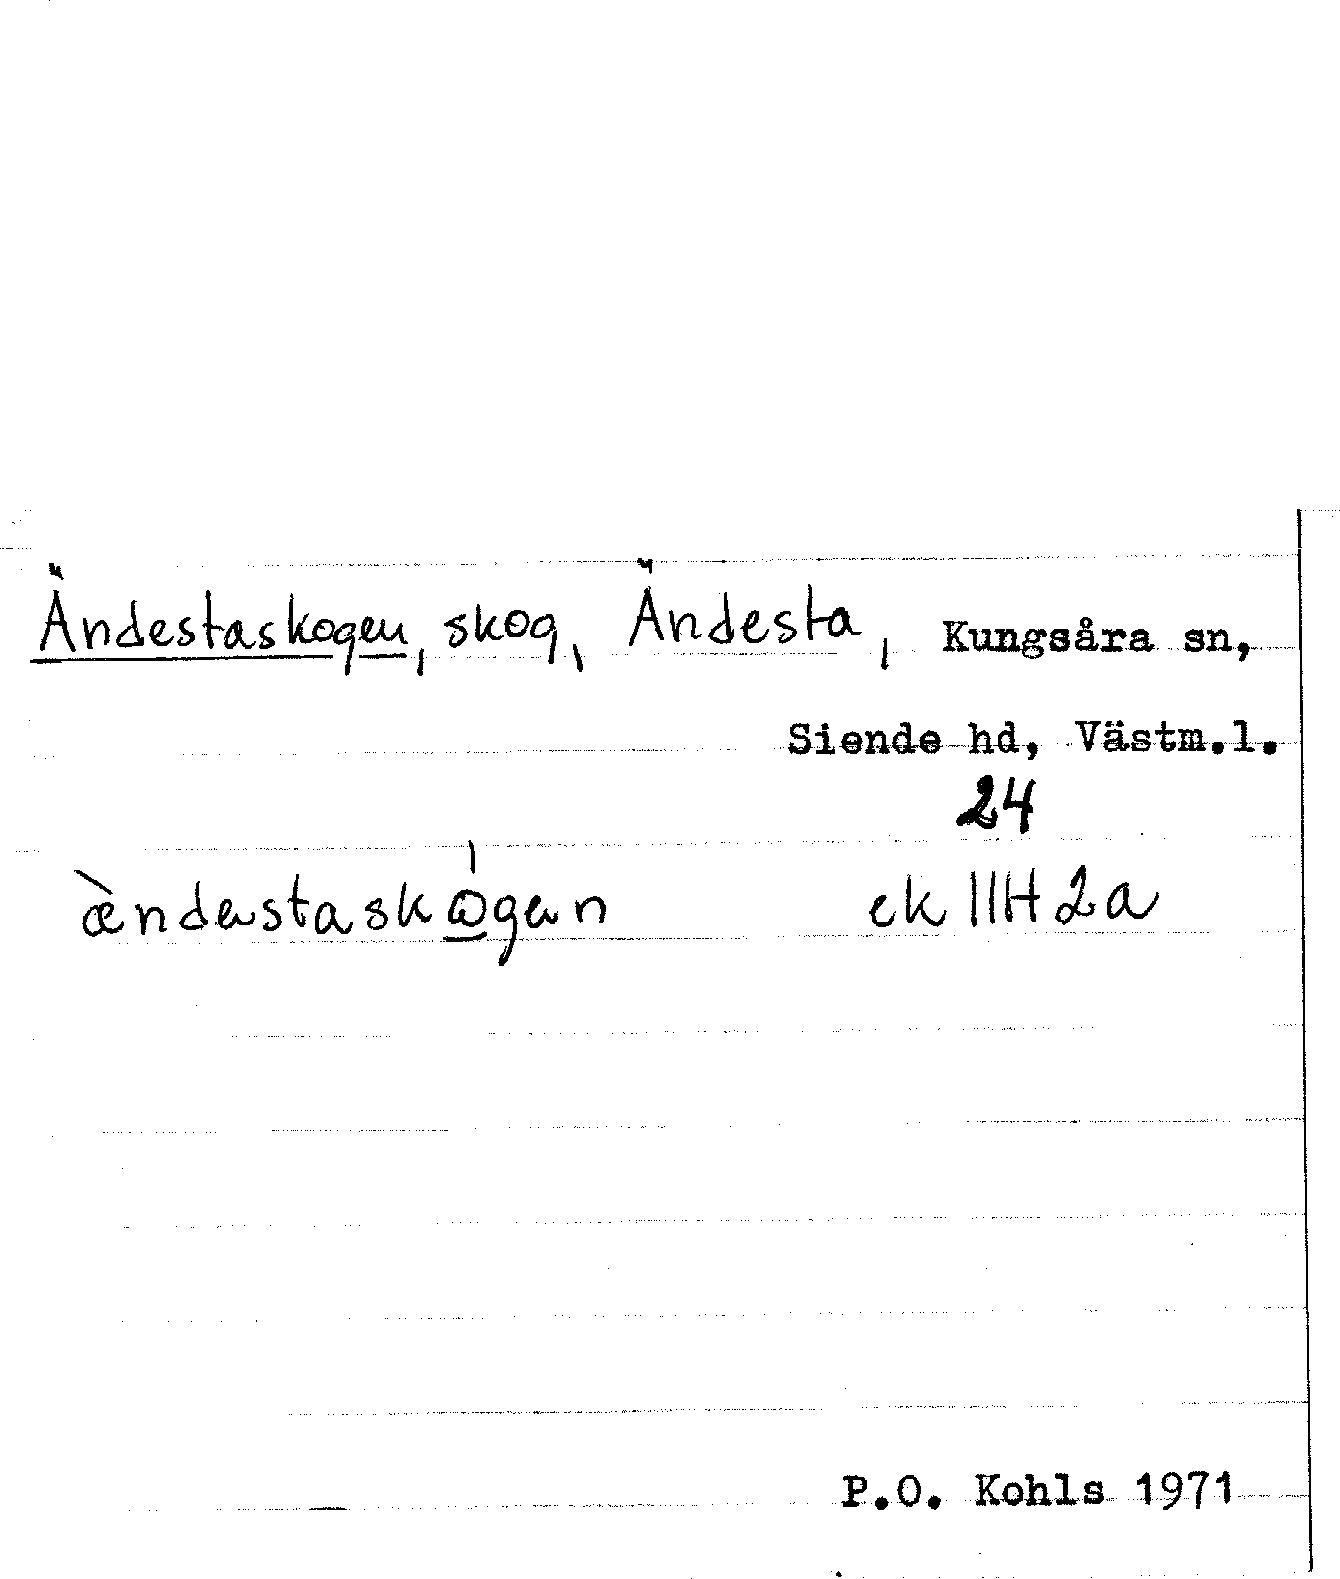 Ändestaskogen, skog, Ändesta, Kungsåra sn,
Siende hd, Västm.l.
24
æ̀ndəstaskɷ̲́gən ek 11H 2a
P.O. Kohls 1971